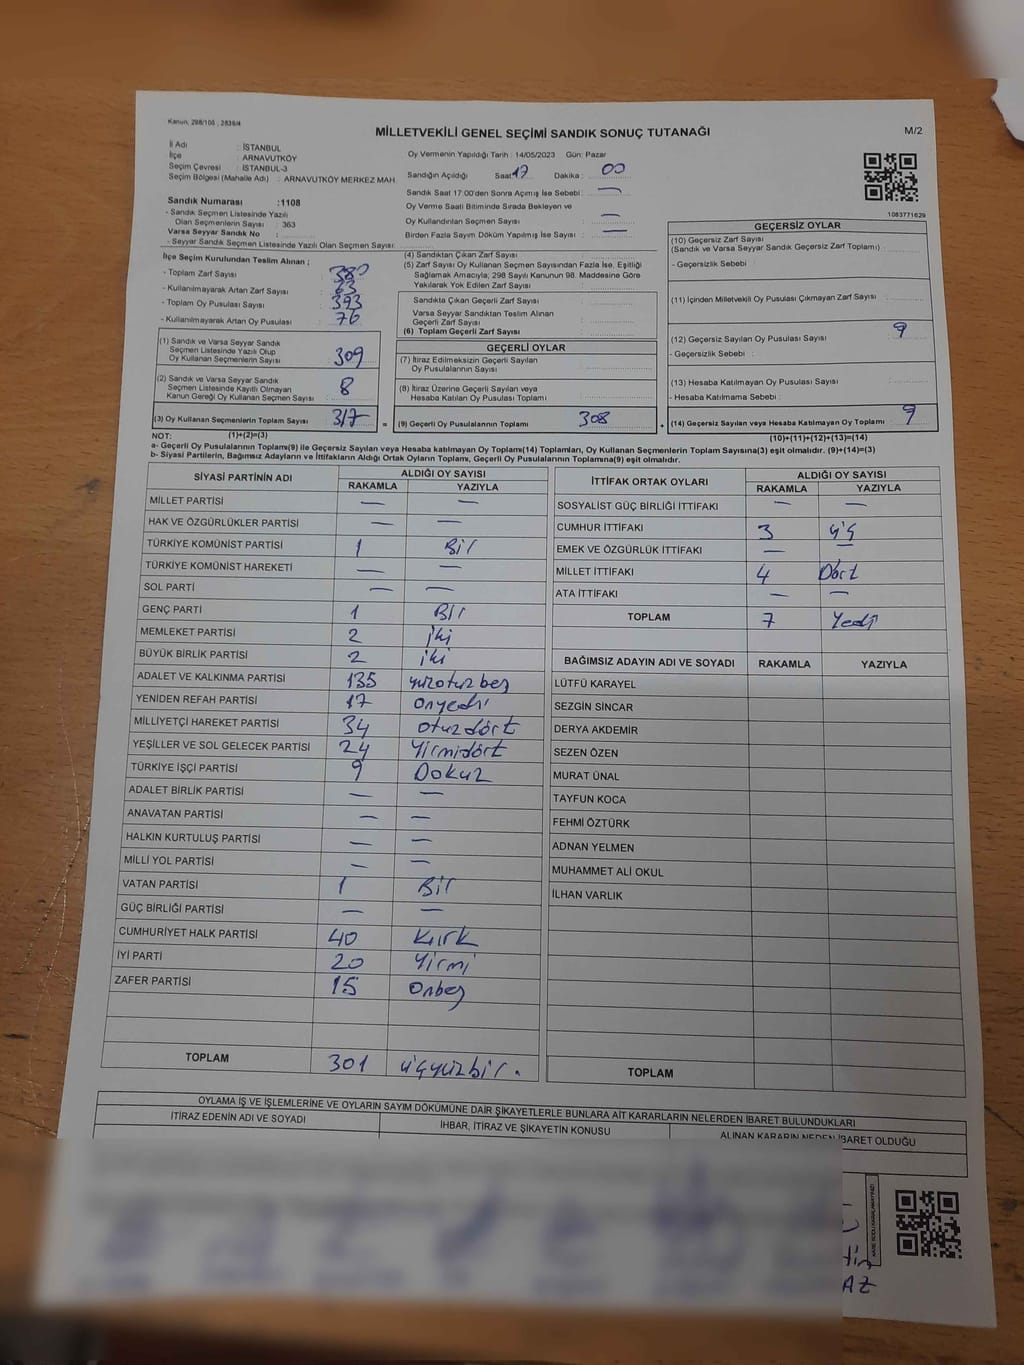 Kanun, 298/105 , 2839/4
MİLLETVEKİLİ GENEL SEÇİMİ SANDIK SONUÇ TUTANAĞI
M/2
İl Adı : İSTANBUL
İlçe : ARNAVUTKÖY
Seçim Çevresi : İSTANBUL-3
Seçim Bölgesi (Mahalle Adı) : ARNAVUTKÖY MERKEZ MAH.
Sandık Numarası :1108
- Sandık Seçmen Listesinde Yazılı
Olan Seçmenlerin Sayısı : 363
Varsa Seyyar Sandık No :
- Seyyar Sandık Seçmen Listesinde Yazılı Olan Seçmen Sayısı:
Oy Vermenin Yapıldığı Tarih : 14/05/2023 Gün: Pazar
Sandığın Açıldığı Saat 17 Dakika : 00
Sandık Saat 17:00'den Sonra Açımış İse Sebebi: —
Oy Verme Saati Bitiminde Sırada Bekleyen ve
Oy Kullandırılan Seçmen Sayısı : —
Birden Fazla Sayım Döküm Yapılmış İse Sayısı : —
1083771629
İlçe Seçim Kurulundan Teslim Alınan ;
- Toplam Zarf Sayısı : 380
- Kullanılmayarak Artan Zarf Sayısı : 63
- Toplam Oy Pusulası Sayısı : 393
- Kullanılmayarak Artan Oy Pusulası : 76
(1) Sandık ve Varsa Seyyar Sandık
Seçmen Listesinde Yazılı Olup
Oy Kullanan Seçmenlerin Sayısı : 309
(2) Sandık ve Varsa Seyyar Sandık
Seçmen Listesinde Kayıtlı Olmayan
Kanun Gereği Oy Kullanan Seçmen Sayısı : 8
(3) Oy Kullanan Seçmenlerin Toplam Sayısı : 317 =
(4) Sandıktan Çıkan Zarf Sayısı :
(5) Zarf Sayısı Oy Kullanan Seçmen Sayısından Fazla İse, Eşitliği
Sağlamak Amacıyla; 298 Sayılı Kanunun 98. Maddesine Göre
Yakılarak Yok Edilen Zarf Sayısı :
Sandıkta Çıkan Geçerli Zarf Sayısı :
Varsa Seyyar Sandıktan Teslim Alınan
Geçerli Zarf Sayısı :
(6) Toplam Geçerli Zarf Sayısı :
GEÇERLİ OYLAR
(7) İtiraz Edilmeksizin Geçerli Sayılan
Oy Pusulalarının Sayısı :
(8) İtiraz Üzerine Geçerli Sayılan veya
Hesaba Katılan Oy Pusulası Toplamı :
(9) Geçerli Oy Pusulalarının Toplamı : 308 +
GEÇERSİZ OYLAR
(10) Geçersiz Zarf Sayısı
(Sandık ve Varsa Seyyar Sandık Geçersiz Zarf Toplamı) :
- Geçersizlik Sebebi :
(11) İçinden Milletvekili Oy Pusulası Çıkmayan Zarf Sayısı :
(12) Geçersiz Sayılan Oy Pusulası Sayısı : 9
- Geçersizlik Sebebi :
(13) Hesaba Katılmayan Oy Pusulası Sayısı :
- Hesaba Katılmama Sebebi :
(14) Geçersiz Sayılan veya Hesaba Katılmayan Oy Toplamı : 9
NOT: (1)+(2)=(3) (10)+(11)+(12)+(13)=(14)
a- Geçerli Oy Pusulalarının Toplamı(9) ile Geçersiz Sayılan veya Hesaba katılmayan Oy Toplamı(14) Toplamları, Oy Kullanan Seçmenlerin Toplam Sayısına(3) eşit olmalıdır. (9)+(14)=(3)
b- Siyasi Partilerin, Bağımsız Adayların ve İttifakların Aldığı Ortak Oyların Toplamı, Geçerli Oy Pusulalarının Toplamına(9) eşit olmalıdır.
SİYASİ PARTİNİN ADI ALDIĞI OY SAYISI
RAKAMLA YAZIYLA
MİLLET PARTİSİ — —
HAK VE ÖZGÜRLÜKLER PARTİSİ — —
TÜRKİYE KOMÜNİST PARTİSİ 1 Bir
TÜRKİYE KOMÜNİST HAREKETİ — —
SOL PARTİ — —
GENÇ PARTİ 1 Bir
MEMLEKET PARTİSİ 2 iki
BÜYÜK BİRLİK PARTİSİ 2 iki
ADALET VE KALKINMA PARTİSİ 135 yüzotuzbeş
YENİDEN REFAH PARTİSİ 17 onyedi
MİLLİYETÇİ HAREKET PARTİSİ 34 otuzdört
YEŞİLLER VE SOL GELECEK PARTİSİ 24 Yirmidört
TÜRKİYE İŞÇİ PARTİSİ 9 Dokuz
ADALET BİRLİK PARTİSİ — —
ANAVATAN PARTİSİ — —
HALKIN KURTULUŞ PARTİSİ — —
MİLLİ YOL PARTİSİ — —
VATAN PARTİSİ 1 Bir
GÜÇ BİRLİĞİ PARTİSİ — —
CUMHURİYET HALK PARTİSİ 40 Kırk
İYİ PARTİ 20 Yirmi
ZAFER PARTİSİ 15 Onbeş
TOPLAM 301 üçyüzbir.
İTTİFAK ORTAK OYLARI ALDIĞI OY SAYISI
RAKAMLA YAZIYLA
SOSYALİST GÜÇ BİRLİĞİ İTTİFAKI — —
CUMHUR İTTİFAKI 3 üç
EMEK VE ÖZGÜRLÜK İTTİFAKI — —
MİLLET İTTİFAKI 4 Dört
ATA İTTİFAKI — —
TOPLAM 7 Yedi
BAĞIMSIZ ADAYIN ADI VE SOYADI RAKAMLA YAZIYLA
LÜTFÜ KARAYEL
SEZGİN SİNCAR
DERYA AKDEMİR
SEZEN ÖZEN
MURAT ÜNAL
TAYFUN KOCA
FEHMİ ÖZTÜRK
ADNAN YELMEN
MUHAMMET ALİ OKUL
İLHAN VARLIK
TOPLAM
OYLAMA İŞ VE İŞLEMLERİNE VE OYLARIN SAYIM DÖKÜMÜNE DAİR ŞİKAYETLERLE BUNLARA AİT KARARLARIN NELERDEN İBARET BULUNDUKLARI
İTİRAZ EDENİN ADI VE SOYADI İHBAR, İTİRAZ VE ŞİKAYETİN KONUSU ALINAN KARARIN NEDEN İBARET OLDUĞU